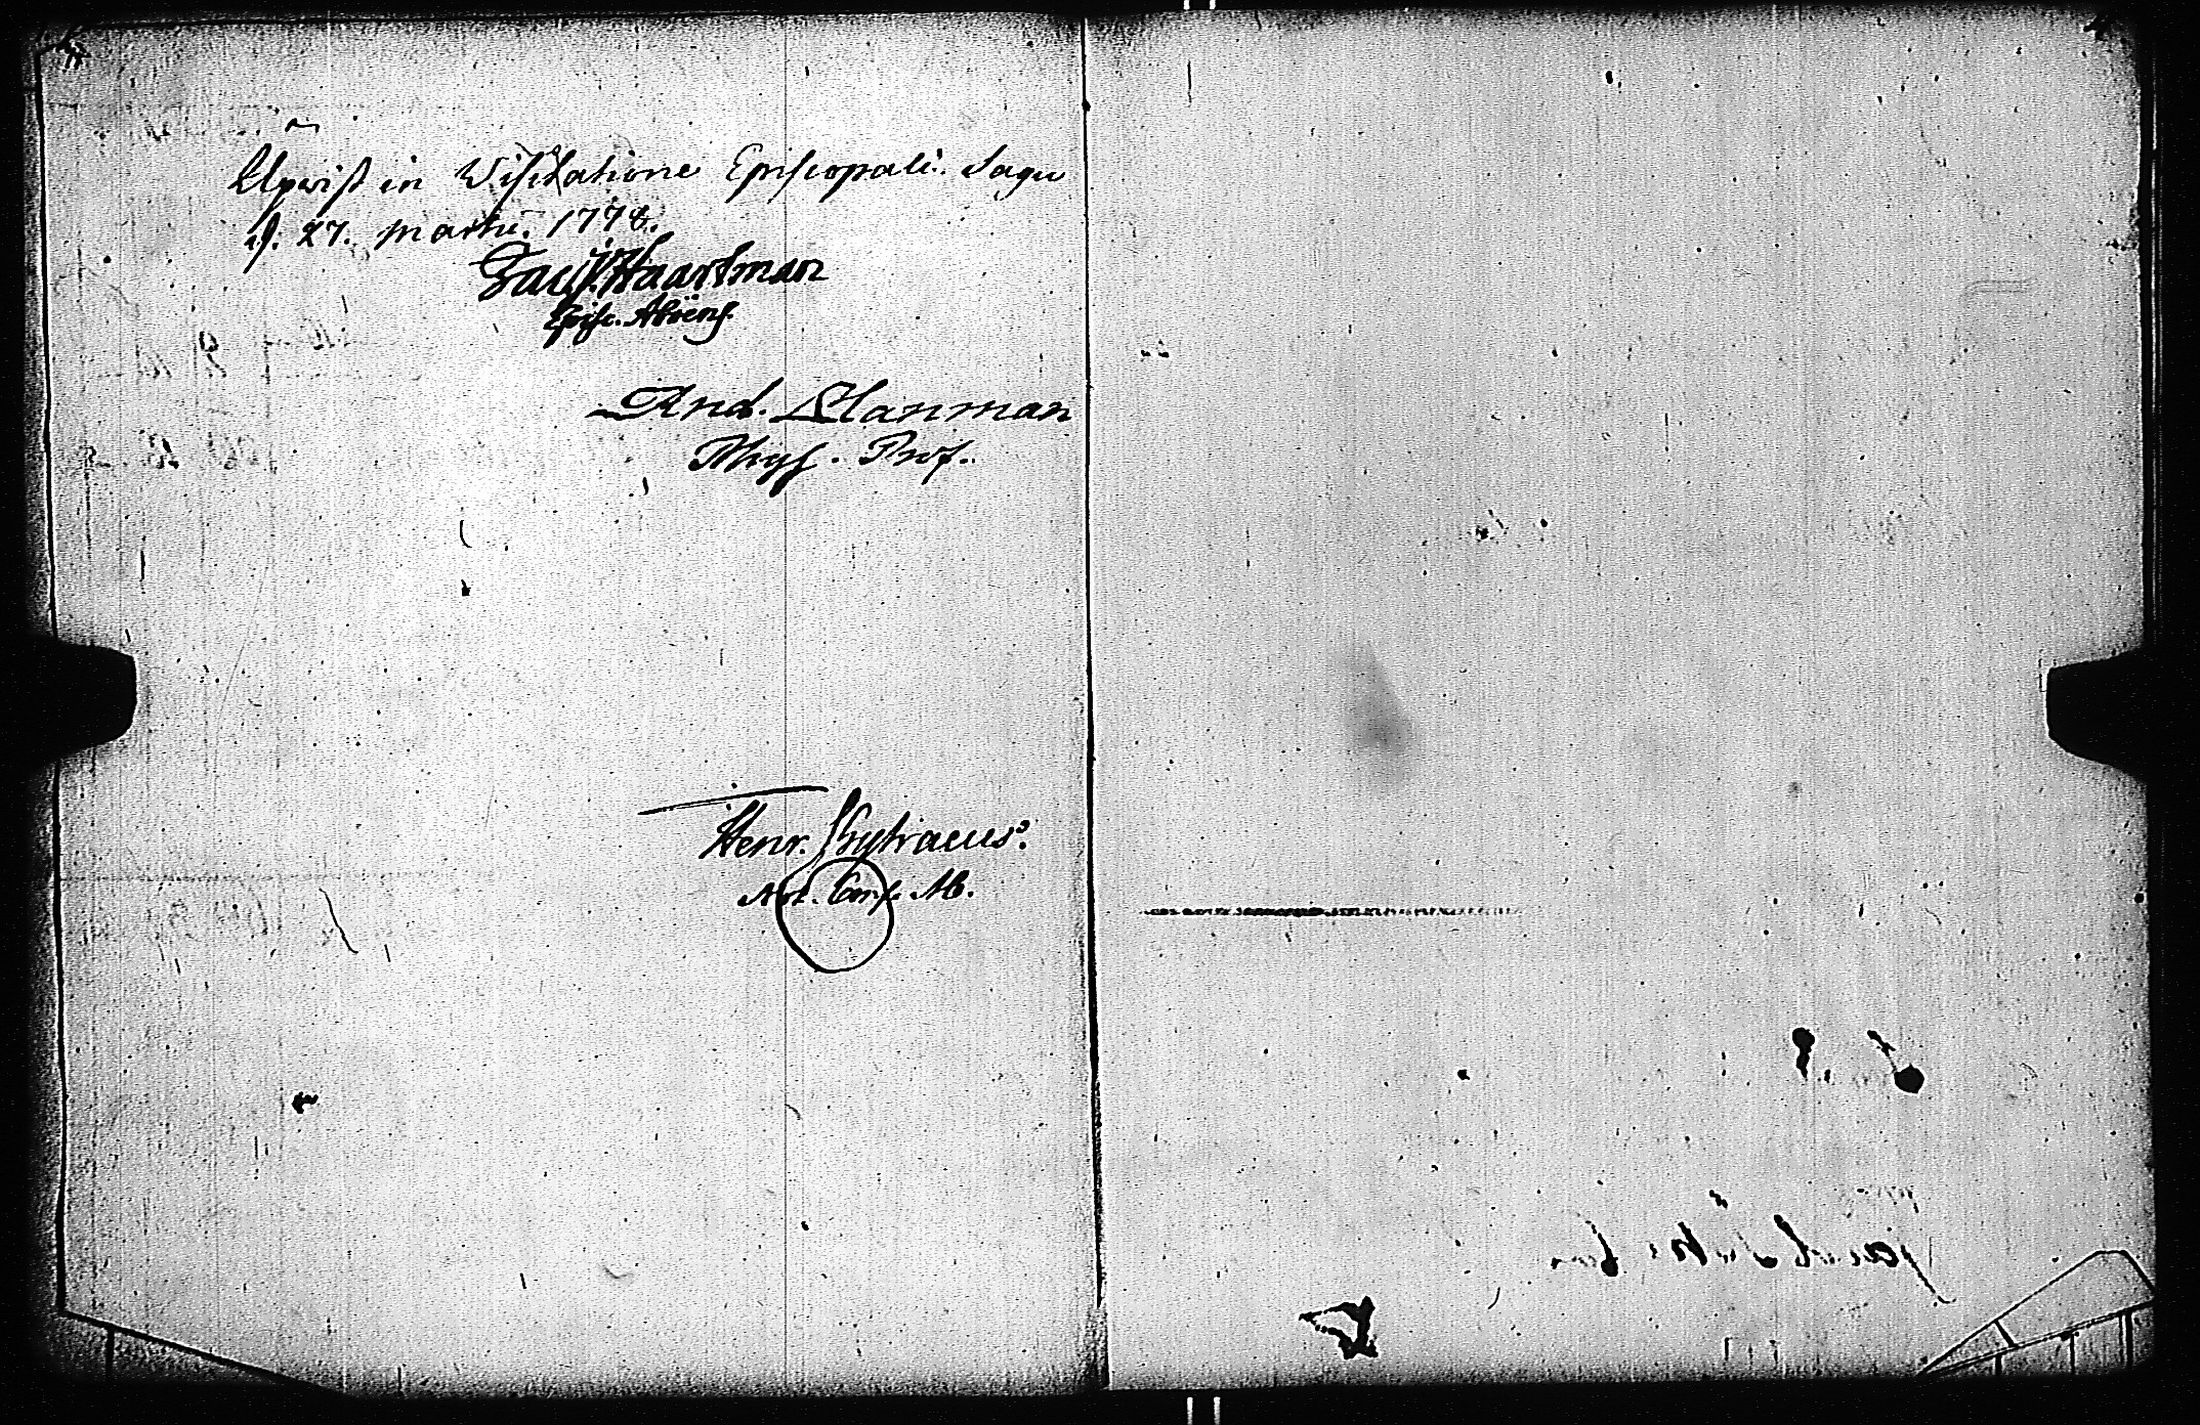 Upwist in Visitatione Episcopali Sagu
d. 27. Martii. 1778.
Jac. Haartman
Episc. Aboëns.
And. Planman
Phys. Prof.
Henr. Chytraeus.
Not. Cons. Ab.